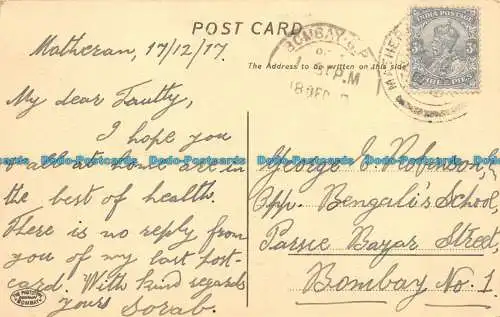 POST CARD
Matheran, 17/12/17.
The Address to be written on this side
BOMBAY G.P.O.
1-31 P.M
18 DEC
MATHERAN
INDIA POSTAGE
3 PS
3 PIES
My dear Faulty,
I hope you
& all at home are in
the best of health.
There is no reply from
you of my last post-
card. With kind regards
yours Sorab.
George E. Robinson,
Opp. Bengali's School,
Parsie Bazar Street,
Bombay No. 1
Dodo-Postcards Dodo-Postcards Dodo-Postcards
THE PHOTOTYPE COMPANY BOMBAY